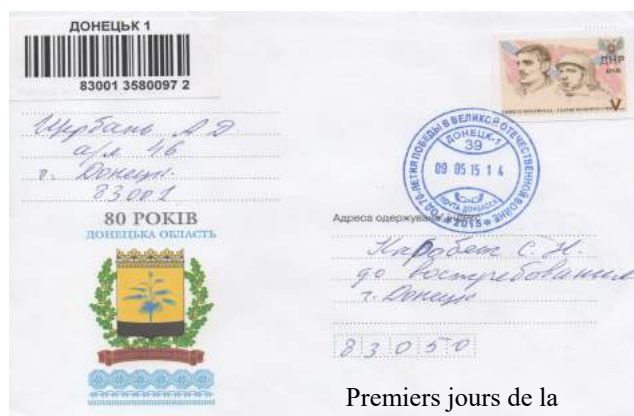 ДОНЕЦЬК 1
83001 3580097 2
ДНР
V
Щербань А Д
а/я 46
г. Донецк
83001
ГОД 70-ЛЕТИЯ ПОБЕДЫ В ВЕЛИКОЙ ОТЕЧЕСТВЕННОЙ ВОЙНЕ
ДОНЕЦК-1
39
09 05 15 1 4
ПОЧТА ДОНБАССА
*2015*
80 РОКІВ
ДОНЕЦЬКА ОБЛАСТЬ
Адреса одержувача
Карабет С. Н.
до востребования
г. Донецк
83050
Premiers jours de la